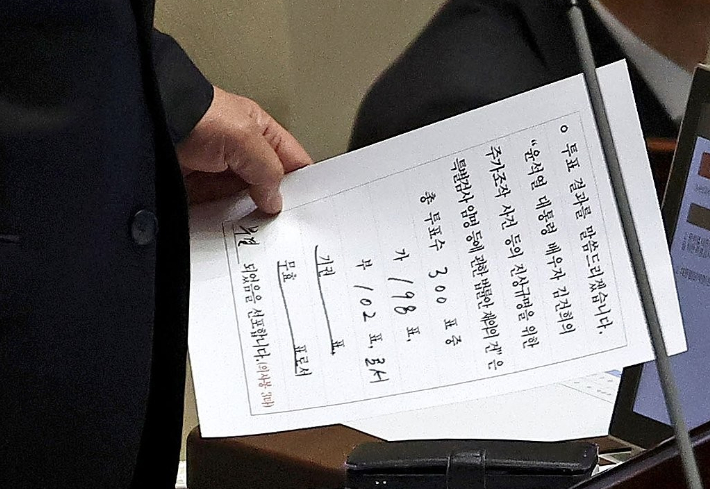 o 투표 결과를 말씀드리겠습니다.
"윤석열 대통령 배우자 김건희의
주가조작 사건 등의 진상규명을 위한
특별검사 임명 등에 관한 법률안 재의의 건"은
총 투표수 300 표 중
가 198 표,
부 102 표, 로서
기권 표,
무효 표로서
부결 되었음을 선포합니다. (의사봉 3타)